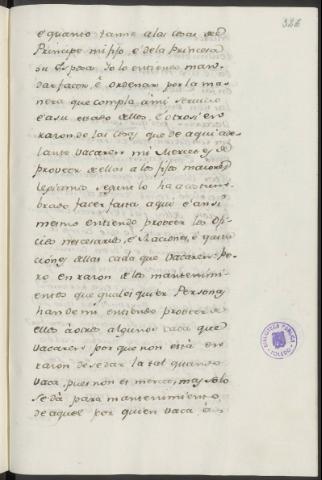 326
e quanto tanne a las cosas de el
Principe mi fijo, e de la Princesa
su Esposa Yo lo entiendo man-
dar facer, è ordenar por la ma-
nera que compla à mi servicio
e a su estado dellos, è otrosi en
razon de las cosas que de aqui ade-
lante vacaren mi Merced es de
proveer de ellas a los fijos maiores
legitimos segun lo ha acostum-
brado facer fasta aqui e ansi
mesmo entiendo proveer los Ofi-
cios necesarios, è Raciones, è quita-
ciones dellas cada que vacaren Pe-
ro en razon de los mantenimi-
entos que quales quier Personas
han de mi entiendo proveer de
ellos à otros algunos cada que
vacaren por que non està en
razon de se dar la tal quando
vaca, pues non es merced, mas solo
se dà para mantenimiento
de aquel por quien vaca, è
BIBLIOTECA PUBLICA
TOLEDO